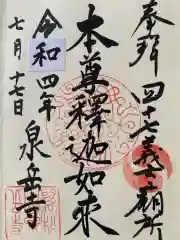 奉拜 四十七義士廟所
本尊釋迦如来
令和四年
七月十七日
泉岳寺